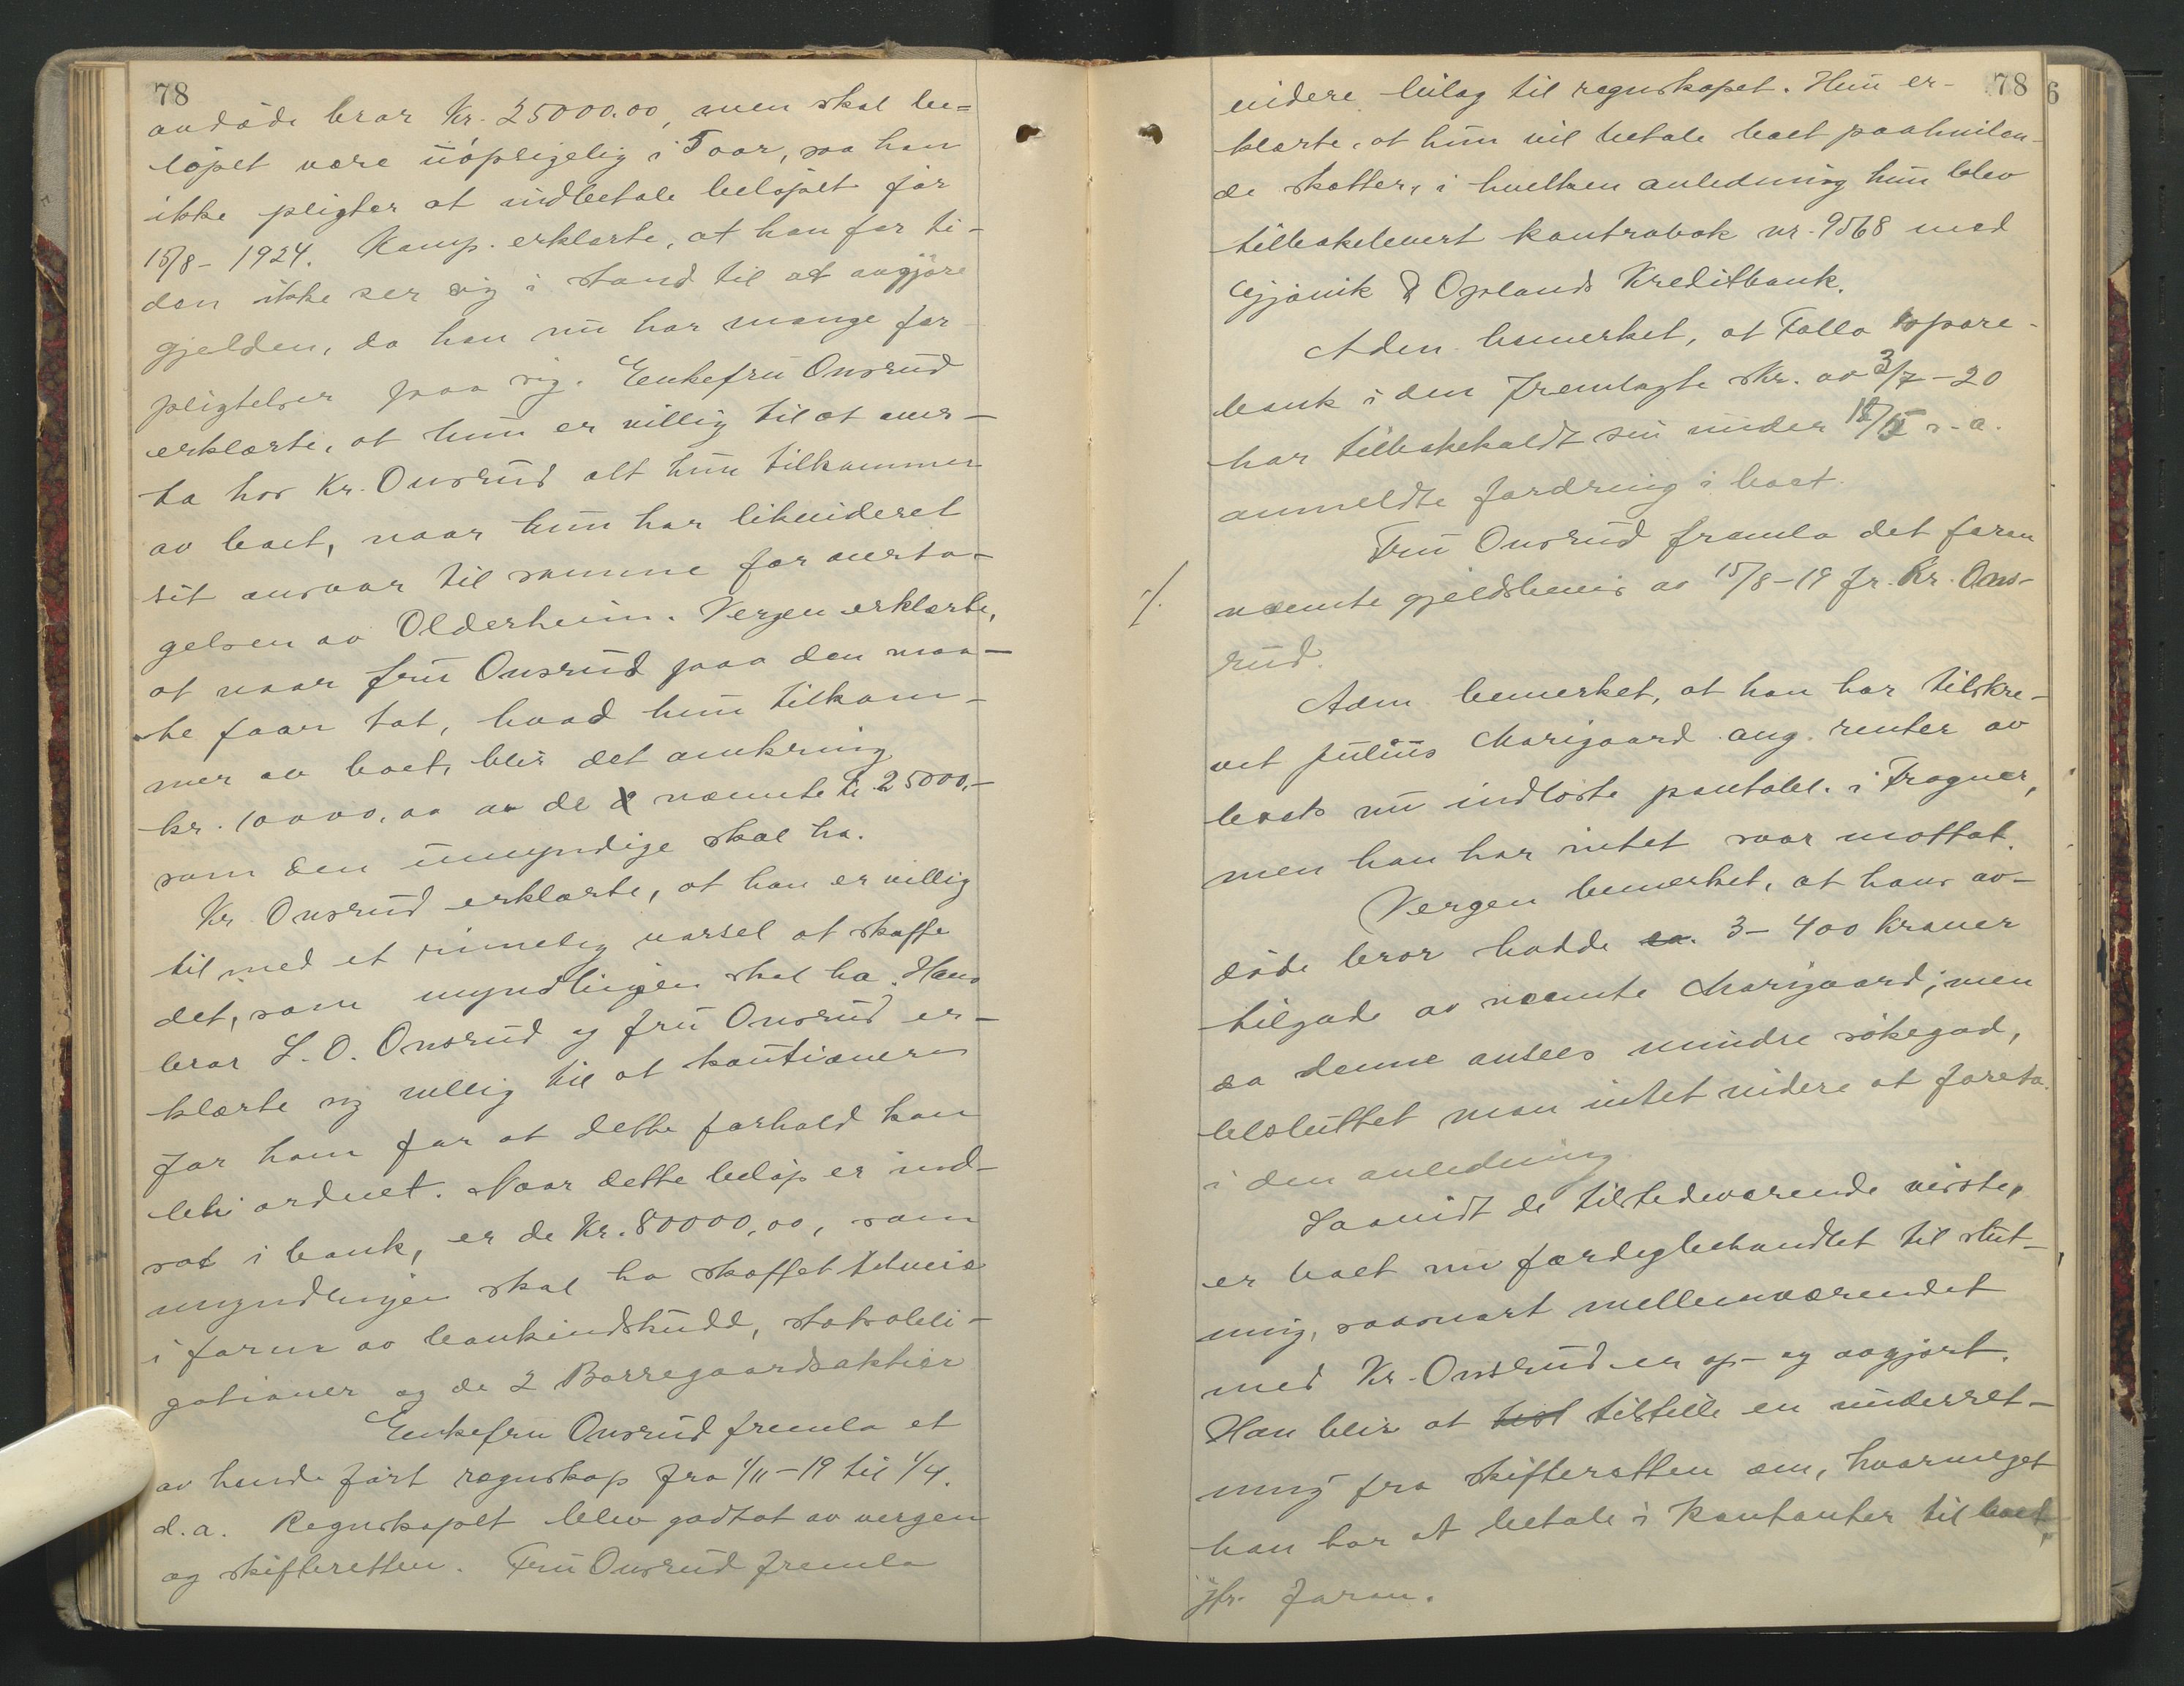 78
avdöde bror Kr. 25000.00, men skal be=
löpet være uopsigelig i 5 aar, saa han
ikke pligter at indbetale belöpet för
15/8 - 1924. Komp. erklærte, at han for ti-
den ikke ser sig i stand til at avgjöre
gjelden, da han nu har mange for
pligtelser paa sig. Enkefru Onsrud
erklærte, at hun er villig til at over-
ta hos Kr. Onsrud alt hun tilkommer
av boet, naar hun har likvideret
sit ansvar til samme for overta-
gelsen av Olderheim. Vergen erklærte,
at naar fru Onsrud paa den maa-
te faar tat, hvad hun tilkom-
mer av boet, blir det omkring
kr. 10000,00 av de nævnte kr. 25000,-
som den umyndige skal ha.
Kr. Onsrud erklærte, at han er villig
til med et rimelig varsel at skaffe
det, som myndlingen skal ha. Hans
bror L. O. Onsrud og fru Onsrud er-
klærte sig villig til at kautionere
for ham for at dette forhold kan
bli ordnet. Naar dette belöp er ind-
sat i bank, er de Kr. 80000,00, som
myndlingen skal ha skaffet tilveie
i form av bankindskudd, statsobli-
gationer og de 2 Borregaardsaktier
Enkefru Onsrud fremla et
av hende fört regnskap fra 1/11-19 til 1/4.
d.a. Regnskapet blev godtat av vergen
og skifteretten. Fru Onsrud fremla
78
6
videre bilag til regnskapet. Hun er-
klærte, at hun vil betale boet paahvilen-
de skatter, i hvilken anledning hun blev
tilbakelevert kontrabok nr. 9568 med
Gjövik & Oplands Kreditbank.
Adm. bemerket, at Follo spare-
bank i den fremlagte skr. av 3/7-20
har tilbakekaldt sin under
anmeldte fordring i boet.
Fru Onsrud framla det foran
nævnte gjeldsbevis av 15/8-19 fr. Kr. Ons-
rud.
Adm bemerket, at han har tilskre-
vet Julius Marigaard ang. renter av
boets nu indlöste pantobl. i Frogner,
men han har intet svar mottat.
Vergen bemerket, at hans av-
döde bror hadde ca. 3- 400 kroner
tilgode av nævnte Marigaard; men
da denne ansees mindre sökegod,
besluttet man intet videre at foreta
i den anledning.
Saavidt de tilstedeværende visste,
er boet nu færdigbehandlet til slut-
ning, saasnart mellemværendet
med Kr. Onsrud er op- og avgjort.
Han blir at tilstille en underret-
ning fra skifteretten om, hvormeget
han har at betale i kontanter til boet,
jfr. foran.